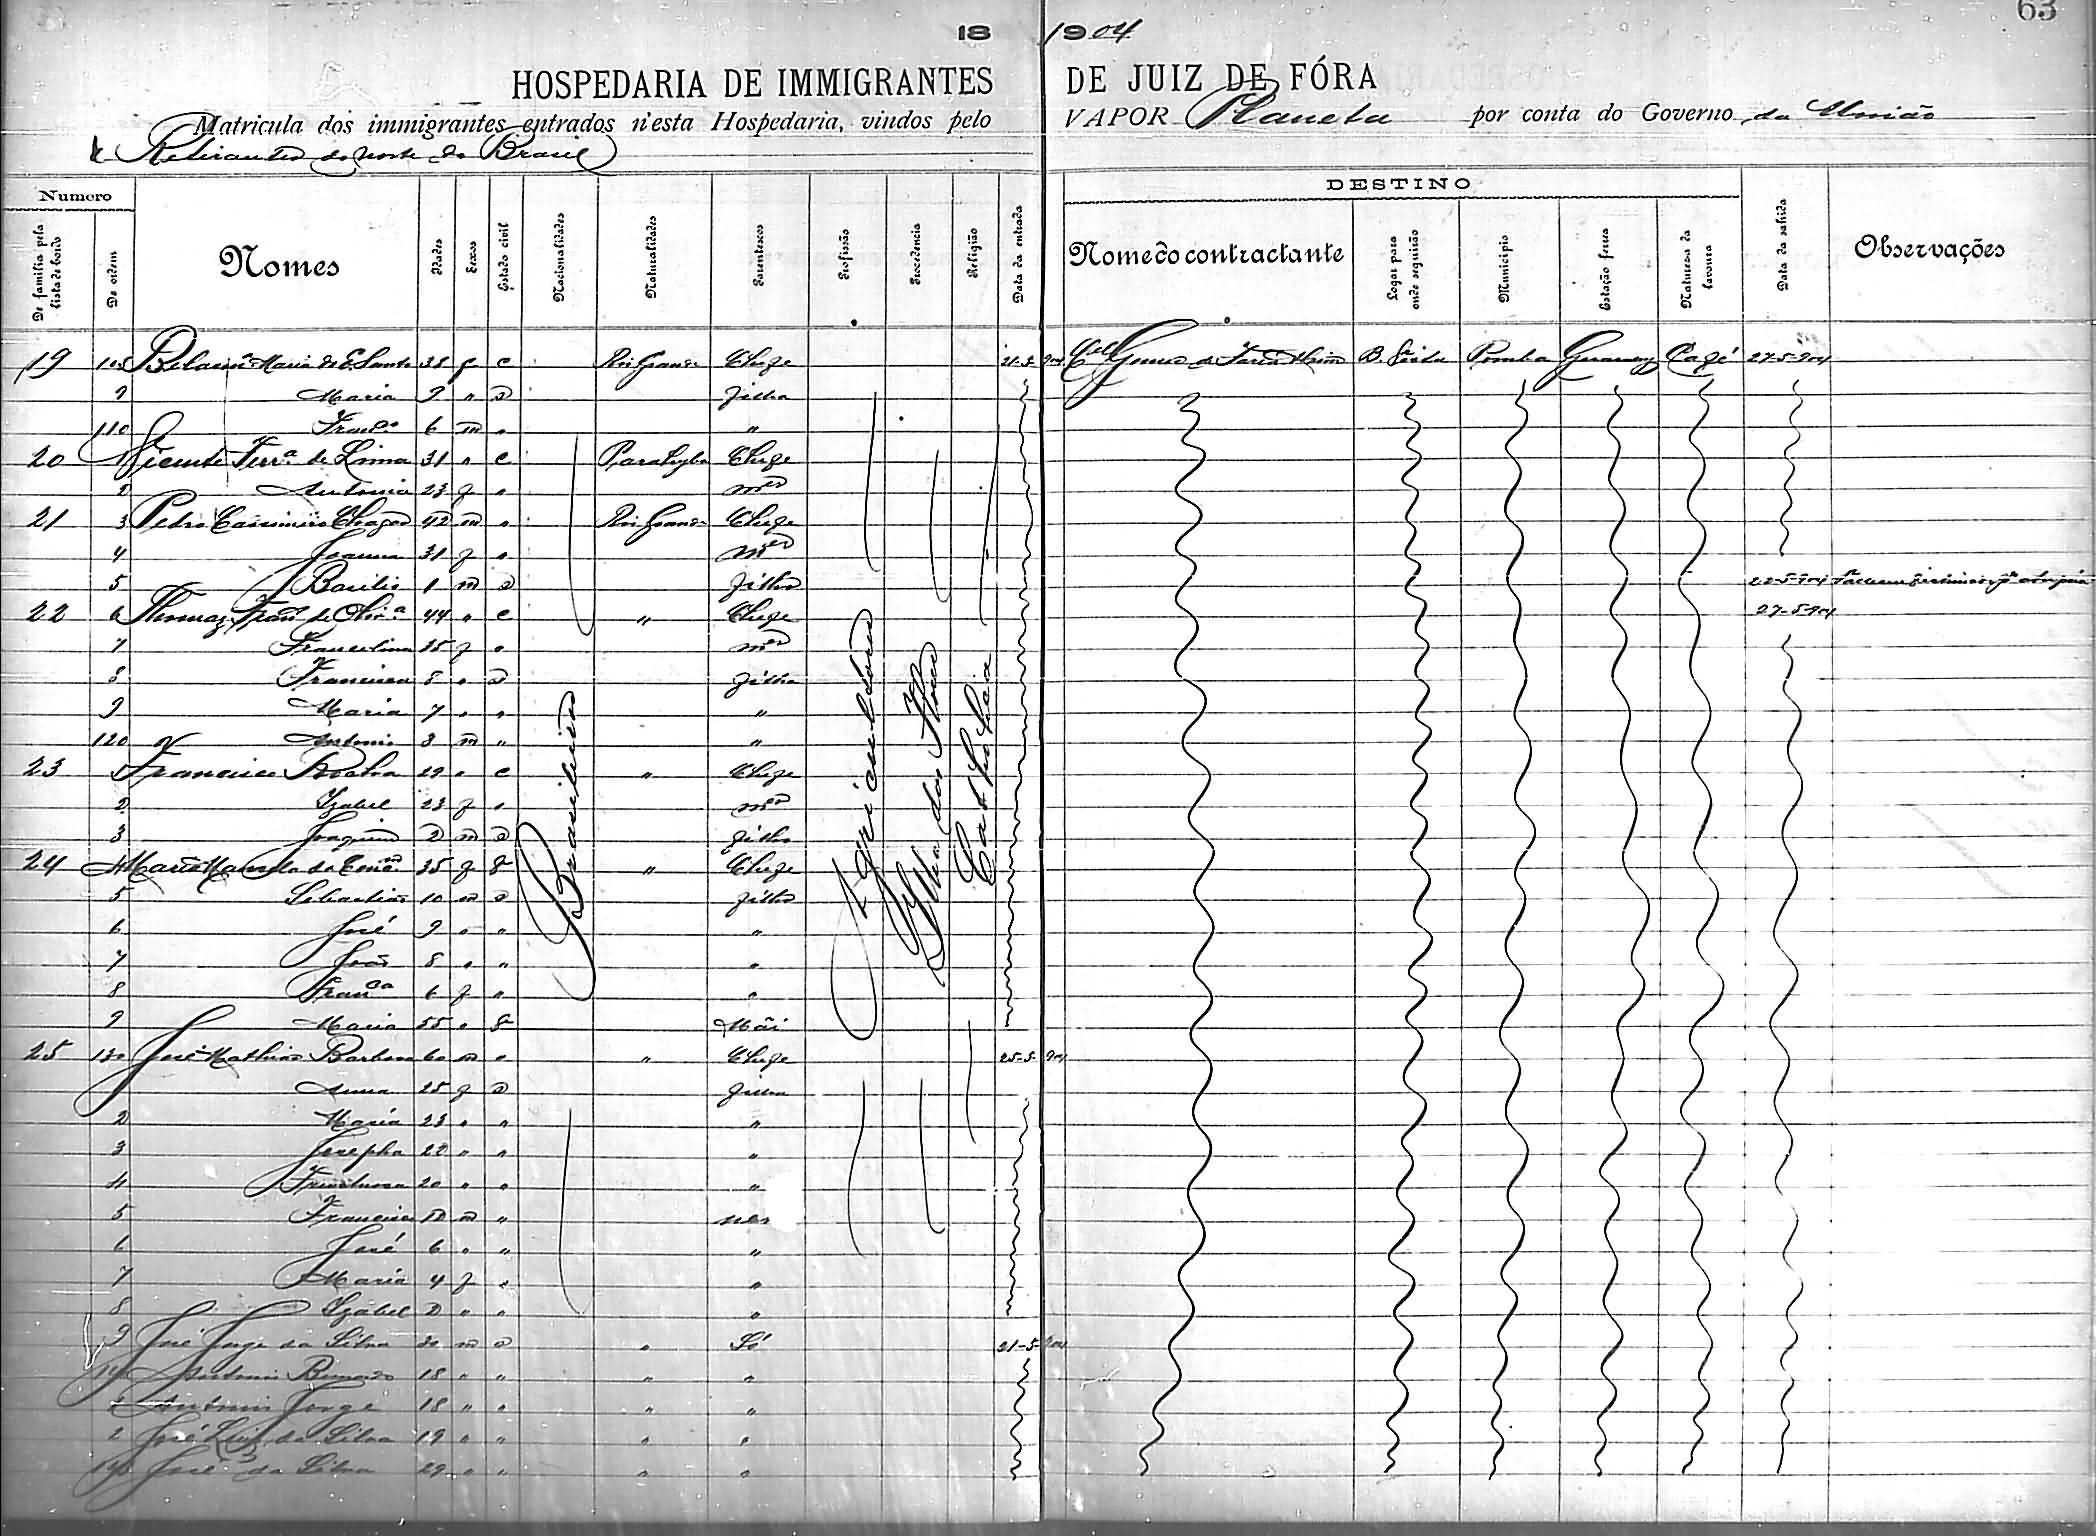 63
18 1904
HOSPEDARIA DE IMMIGRANTES DE JUIZ DE FÓRA
Matricula dos immigrantes entrados n'esta Hospedaria, vindos pelo VAPOR Planeta por conta do Governo da União
Retirantes do norte do Brasil
Numero DESTINO
De familia pela lista de bordo De ordem Nomes Idades Sexos Estado civil Nacionalidades Naturalidades Parentescos Profissão Procedencia Religião Data da entrada Nome do contractante Logar para onde seguirão Municipio Estação ferrea Natureza da lavoura Data da sahida Observações
19 Maria do E. Santo 38 f c Rio Grande Chefe 21-5-904 Cel Gomes de B. Pomba Guarany Café 27-5-904
9 Maria 9 " s filha
110 Franco 6 m " "
20 1 Vicente Ferra de Lima 31 " c Parahyba Chefe
2 Antonia 23 f " mer
21 3 Pedro Casimiro Chagas 42 m " Rio Grande Chefe
4 Joanna 31 f " mer
5 Basilio 1 m s filho 22-5-904
22 6 Thomaz Franco de Olivra 44 " c " Chefe 27-5-904
7 Francelina 35 f " mer
8 Francisca 8 " s filha
9 Maria 7 " " "
120 Antonio 3 m " "
23 1 Francisco Rocha 29 " c " Chefe
2 Izabel 23 f " mer
3 Joaquim 2 m s filho
24 4 Maria Manoela da Concm 35 f v " Chefe
5 Sebastião 10 m s filho
6 José 9 " " "
7 João 8 " " "
8 Franca 6 f " "
9 Maria 55 " v Mãi
25 130 José Mathias Barbosa 60 m " " Chefe 25-5-904
1 Anna 25 f s filha
2 Maria 23 " " "
3 Josepha 22 " " "
4 20 " " "
5 Francisco m " neto
6 José 6 " " "
7 Maria 4 f " "
8 Izabel 2 " " "
9 José Jorge da Silva 20 m s " Só 21-5-904
140 Antonio 18 " " " "
1 Antonio Jorge 18 " " " "
2 José Luiz da Silva 19 " " " "
José da Silva 29 " " " "
Brasileiros
Agricultores
Ilha das Flores
Catholica